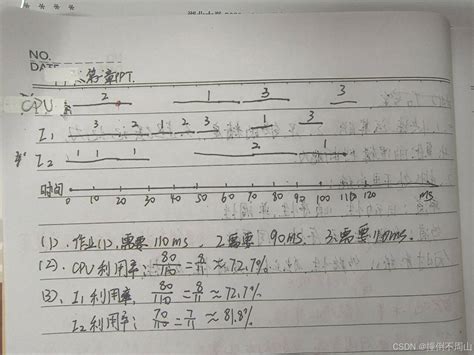 NO.
DATE
第 章PPT.
CPU 2 1 3 3
I1 3 2 1 2 3 1 3
I2 1 1 2 1
时间 0 10 20 30 40 50 60 70 80 90 100 110 120 ms
(1). 作业(1). 需要 110ms. 2需要 90ms. 3需要 110ms.
(2). CPU利用率: 80/110 = 8/11 ≈ 72.7%
(3). I1利用率: 80/110 = 8/11 ≈ 72.7%.
I2利用率: 70/110 = 7/11 ≈ 81.8%.
CSDN @撞倒不周山